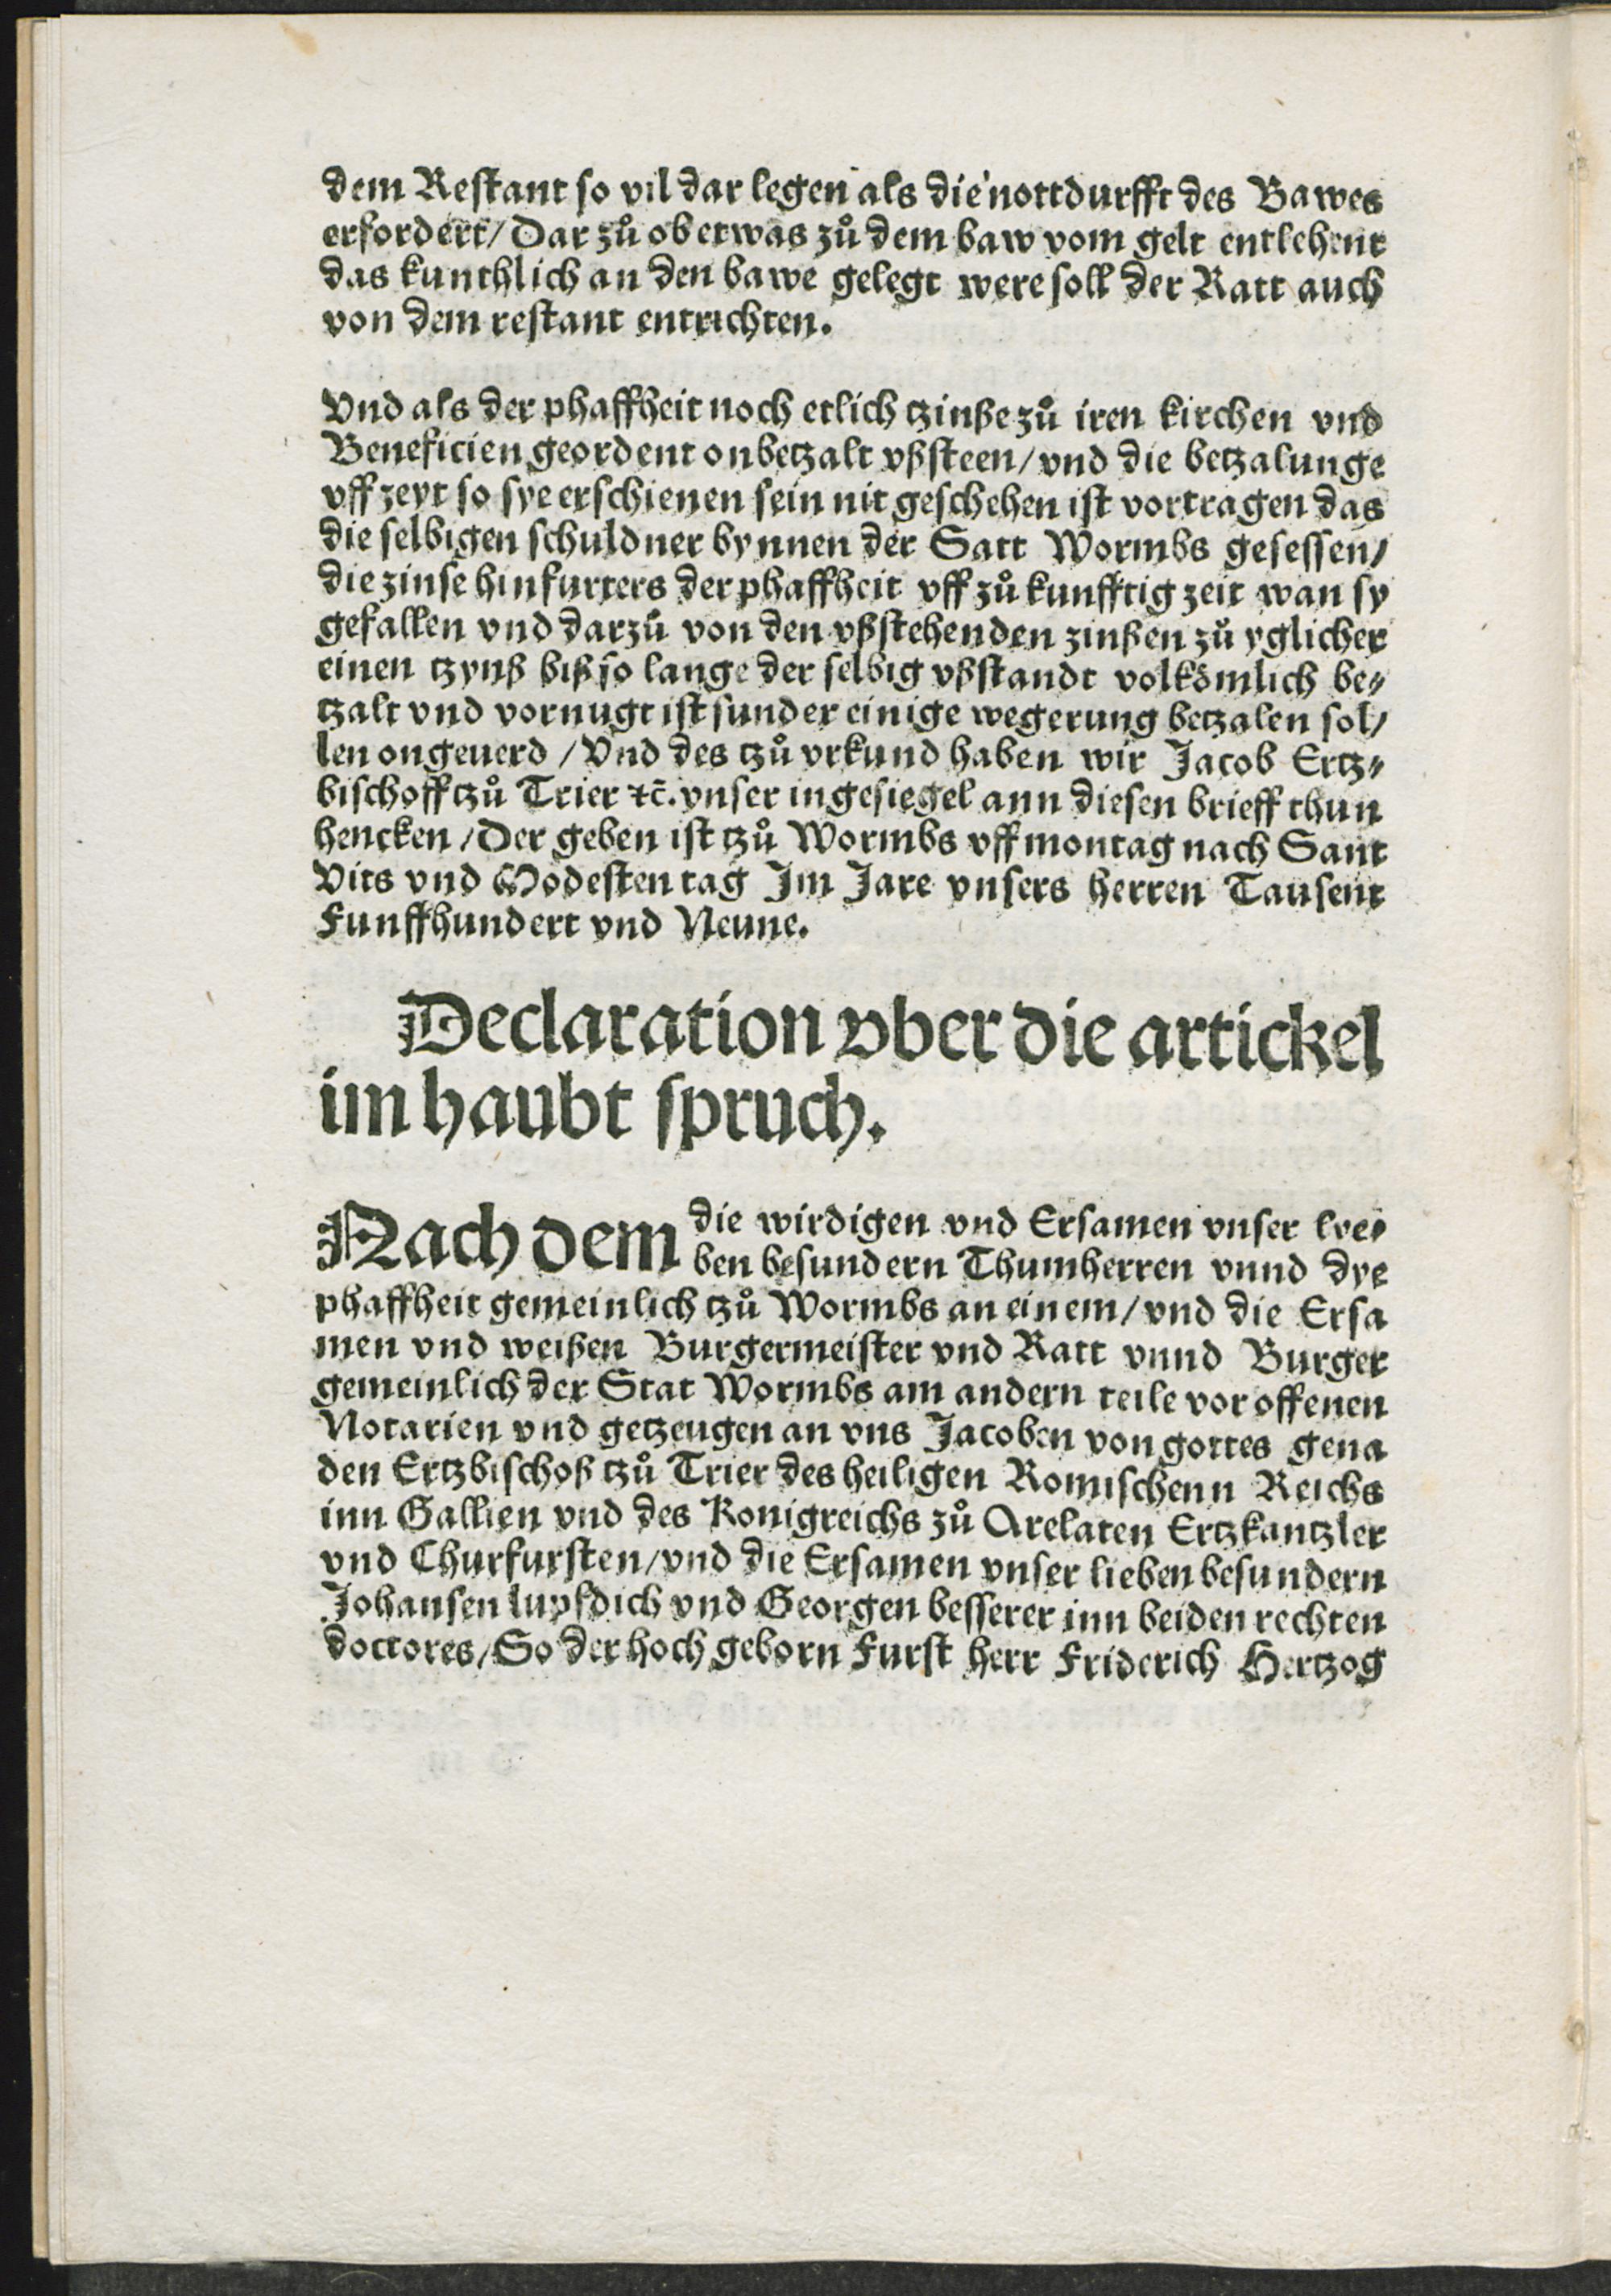 dem Restant so vil dar legen als die nottdurfft des Bawes
erfordert / Dar zů ob etwas zů dem baw vom gelt entlehent
das kunthlich an den bawe gelegt were soll der Ratt auch
von dem restant entrichten.
Vnd als der phaffheit noch etlich tzinße zů iren kirchen vnd
Beneficien geordent onbetzalt vßsteen / vnd die betzalunge
vff zeyt so sye erschienen sein nit geschehen ist vortragen das
die selbigen schuldner bynnen der Satt Wormbs gesessen /
die zinse hinfurters der phaffheit vff zů kunfftig zeit wan sy
gefallen vnd darzů von den vßstehenden zinßen zů yglicher
einen tzynß biß so lange der selbig vßstandt volkōmlich be⸗
tzalt vnd vornugt ist sunder einige wegerung betzalen sol /
len ongeuerd / Vnd des tzů vrkund haben wir Jacob Ertz⸗
bischoff tzů Trier ⁊c̄. vnser ingesiegel ann diesen brieff thun
hencken / Der geben ist tzů Wormbs vff montag nach Sant
Vits vnd Modesten tag Im Jare vnsers herren Tausent
Funffhundert vnd Neune.
Declaration vber die artickel
im haubt spruch.
Nach dem die wirdigen vnd Ersamen vnser lyei
ben besundern Thumherren vnnd dye
phaffheit gemeinlich tzů Wormbs an einem / vnd die Ersa
men vnd weißen Burgermeister vnd Ratt vnnd Burger
gemeinlich der Stat Wormbs am andern teile vor offenen
Notarien vnd getzeugen an vns Jacoben von gottes gena
den Ertzbischoß tzů Trier des heiligen Romischenn Reichs
inn Gallien vnd des Konigreichs zů Arelaten Ertzkantzler
vnd Churfursten / vnd die Ersamen vnser lieben besundern
Johansen lupfdich vnd Georgen besserer inn beiden rechten
doctores / So der hoch geborn Furst herr Friderich Hertzog